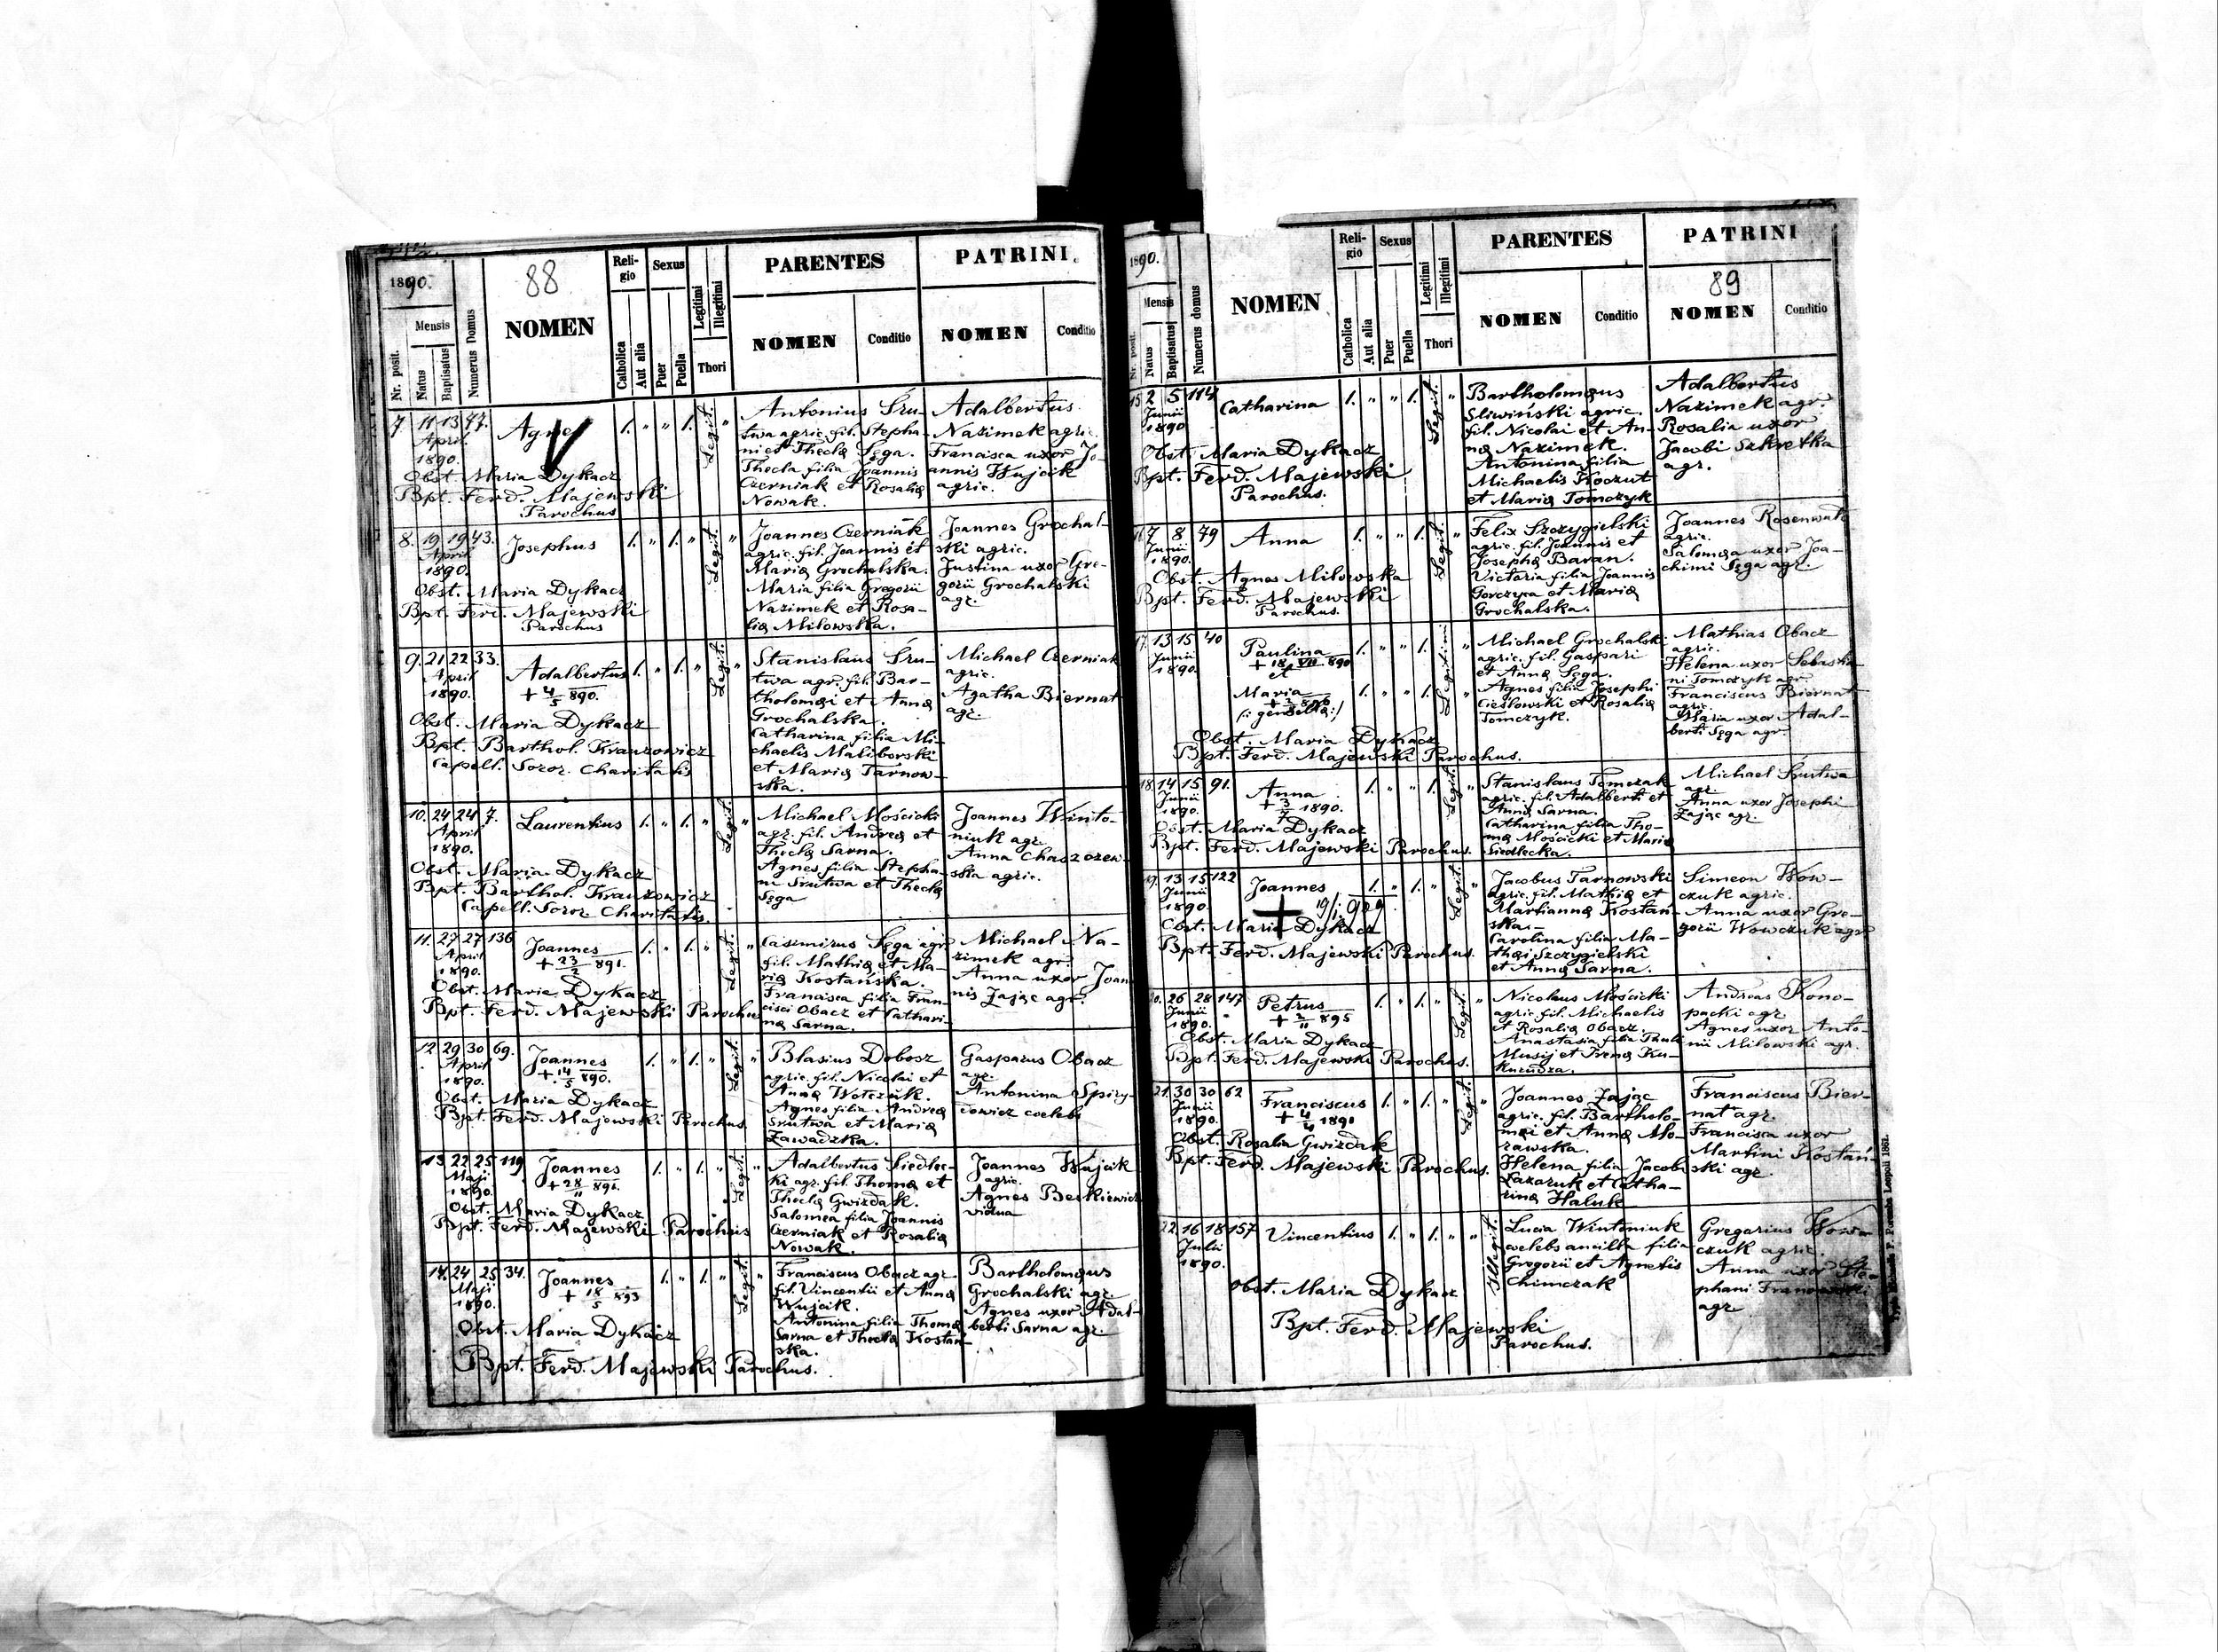 1890.
88
Nr. posit.
Mensis
Natus
Baptisatus
Numerus Domus
NOMEN
Religio
Catholica
Aut alia
Sexus
Puer
Puella
Legitimi
Illegitimi
Thori
PARENTES
NOMEN
Conditio
PATRINI.
NOMEN
Conditio
7. 11 13 77.
April
1890.
Agnes
1. " " 1. Legit. "
Obst. Maria Dykacz
Bpt. Ferd. Majewski
Parochus
Antonius Sru-
twa agric. fil. Stepha-
ni et Theclæ Sęga.
Thecla filia Joannis
Czerniak et Rosaliæ
Nowak.
Adalbertus
Nazimek agric.
Francisca uxor Jo-
annis Wujcik
agric.
8. 19 19 43.
April
1890.
Josephus
1. " 1. " Legit. "
Obst. Maria Dykacz
Bpt. Ferd. Majewski
Parochus
Joannes Czerniak
agric. fil. Joannis et
Mariæ Grochalska.
Maria filia Gregorii
Nazimek et Rosa-
liæ Milowska.
Joannes Grochal-
ski agric.
Justina uxor Gre-
gorii Grochalski
agr.
9. 21 22 33.
April
1890.
Adalbertus
+ 4/5 890.
1. " 1. " Legit. "
Obst. Maria Dykacz
Bpt. Barthol. Kranzowicz
Capell. Soror. Charitatis
Stanislaus Sru-
twa agr. fil. Bar-
tholomæi et Annæ
Grochalska.
Catharina filia Mi-
chaelis Maliborski
et Mariæ Tarnow-
ska.
Michael Czerniak
agric.
Agatha Biernat
agr.
10. 24 24 7.
April
1890.
Laurentius
1. " 1. " Legit. "
Obst. Maria Dykacz
Bpt. Barthol. Kranzowicz
Capell. Soror. Charitatis.
Michael Mościcki
agr. fil. Andreæ et
Theclæ Sarna.
Agnes filia Stepha-
ni Srutwa et Theclæ
Sęga
Joannes Winto-
niuk agr.
Anna Chaszczew-
ska agric.
11. 27 27 136
April
1890.
Joannes
+ 23/2 891.
1. " 1. " Legit. "
Obst. Maria Dykacz
Bpt. Ferd. Majewski Parochus
Casimirus Sęga agr.
fil. Mathiæ et Ma-
riæ Kostańska.
Francisca filia Fran-
cisci Obacz et Cathari-
næ Sarna.
Michael Na-
zimek agr.
Anna uxor Joan
nis Zając agr.
12. 29 30 69.
April
1890.
Joannes
+ 14/5 890.
1. " 1. " Legit. "
Obst. Maria Dykacz
Bpt. Ferd. Majewski Parochus.
Blasius Dobosz
agric. fil. Nicolai et
Annæ Wotczuk.
Agnes filia Andreæ
Srutwa et Mariæ
Zawadzka.
Gasparus Obacz
agr.
Antonina Spiry-
dowicz coelebs
13. 22 25 119.
Maji
1890.
Joannes
+ 28/11 891.
1. " 1. " Legit. "
Obst. Maria Dykacz
Bpt. Ferd. Majewski Parochus
Adalbertus Siedlec-
ki agr. fil. Thomæ et
Theclæ Gwizdak.
Salomea filia Joannis
Czerniak et Rosaliæ
Nowak.
Joannes Wujcik
agric.
Agnes Beskiewicz
vidua
14. 24 25 34.
Maji
1890.
Joannes
+ 18/5 893
1. " 1. " Legit. "
Obst. Maria Dykacz
Bpt. Ferd. Majewski Parochus.
Franciscus Obacz agr.
fil. Vincentii et Annæ
Wujcik.
Antonina filia Thomæ
Sarna et Theclæ Kostań-
ska.
Bartholomæus
Grochalski agr.
Agnes uxor Adal-
berti Sarna agr.
1890.
Nr. posit.
Mensis
Natus
Baptisatus
Numerus domus
NOMEN
Religio
Catholica
Aut alia
Sexus
Puer
Puella
Legitimi
Illegitimi
Thori
PARENTES
NOMEN
Conditio
PATRINI
89
NOMEN
Conditio
15 2 5 114
Junii
1890
Catharina
1. " " 1. Legit. "
Obst. Maria Dykacz
Bpt. Ferd. Majewski
Parochus.
Bartholomæus
Sliwiński agric.
fil. Nicolai et An-
næ Nazimek.
Antonina filia
Michaelis Koczut
et Mariæ Tomczyk
Adalbertus
Nazimek agr.
Rosalia uxor
Jacobi Szkretka
agr.
16. 7 8 79
Junii
1890.
Anna
1. " " 1. Legit. "
Obst. Agnes Milowska
Bpt. Ferd. Majewski
Parochus.
Felix Szczygielski
agric. fil. Joannis et
Josephæ Baran.
Victoria filia Joannis
Gorczyca et Mariæ
Grochalska.
Joannes Rosenwald
agric.
Salomea uxor Joa-
chimi Sęga agr.
17. 13 15 40
Junii
1890.
Paulina
+ 18/VII 890
et
Maria
(: gemellæ :)
1. " " 1. "
1. " " 1.
Obst. Maria Dykacz
Bpt. Ferd. Majewski Parochus.
Michael Grochalski
agric. fil. Gaspari
et Annæ Sęga.
Agnes filia Josephi
Cieślowski et Rosaliæ
Tomczyk.
Mathias Obacz
agric.
Helena uxor Sebastia
ni Tomczyk agr.
Franciscus Biernat
agric.
Maria uxor Adal-
berti Sęga agr.
18. 14 15 91.
Junii
1890.
Anna
+ 3/7 1890.
1. " " 1. Legit. "
Obst. Maria Dykacz
Bpt. Ferd. Majewski Parochus.
Stanislaus Tomczak
agric. fil. Adalberti et
Annæ Sarna.
Catharina filia Tho-
mæ Mościcki et Mariæ
Siedlecka.
Michael Srutwa
agr.
Anna uxor Josephi
Zając agr.
19. 13 15 122
Junii
1890.
Joannes
+ 19/I 929
1. " 1. " Legit. "
Obst. Maria Dykacz
Bpt. Ferd. Majewski Parochus.
Jacobus Tarnowski
agric. fil. Mathiæ et
Mariannæ Kostań-
ska.
Carolina filia Ma-
thæi Szczygielski
et Annæ Sarna.
Simeon Wow-
czuk agric.
Anna uxor Gre-
gorii Wowczuk agr.
20. 26 28 147
Junii
1890.
Petrus
+ 2/11 895
1. " 1. " Legit. "
Obst. Maria Dykacz
Bpt. Ferd. Majewski Parochus.
Nicolaus Mościcki
agric. fil. Michaelis
et Rosaliæ Obacz.
Anastasia filia Pauli
Musij et Irenæ Ku-
kurudza.
Andreas Kono-
packi agr.
Agnes uxor Anto-
nii Milowski agr.
21. 30 30 62
Junii
1890.
Franciscus
+ 4/4 1891
1. " 1. " Legit. "
Obst. Rosalia Gwizdak
Bpt. Ferd. Majewski Parochus.
Joannes Zając
agric. fil. Bartholo-
mæi et Annæ Mo-
rawska.
Helena filia Jacobi
Lazaruk et Catha-
rinæ Haluk
Franciscus Bier-
nat agr.
Francisca uxor
Martini Kostań-
ski agr.
22. 16 18 157
Julii
1890.
Vincentius
1. " 1. " " Illegit.
Obst. Maria Dykacz
Bpt. Ferd. Majewski
Parochus.
Lucia Wintoniuk
coelebs ancilla filia
Gregorii et Agnetis
Chimczak
Gregorius Wow-
czuk agric.
Anna uxor Ste-
phani
agr.
Leopoli 1862.